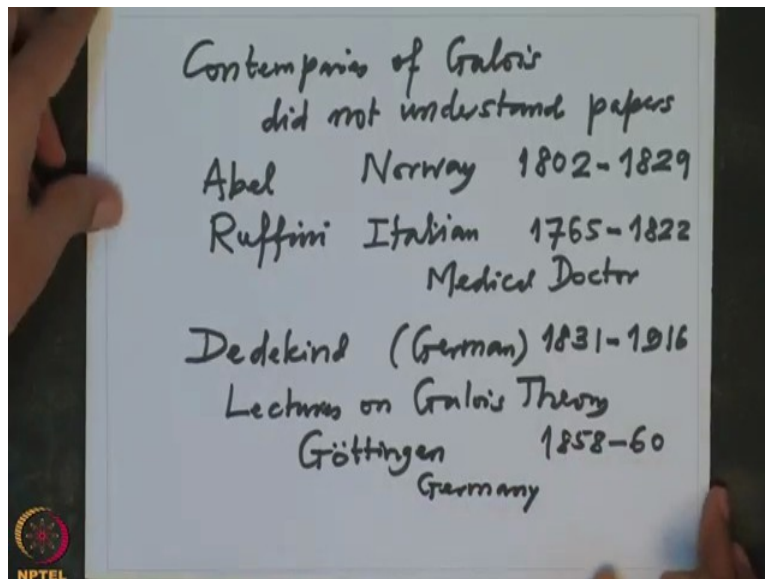 Contemparies of Galois
did not understand papers
Abel Norway 1802-1829
Ruffini Italian 1765-1822
Medical Doctor
Dedekind (German) 1831-1916
Lectures on Galois Theory
Göttingen 1858-60
Germany
NPTEL